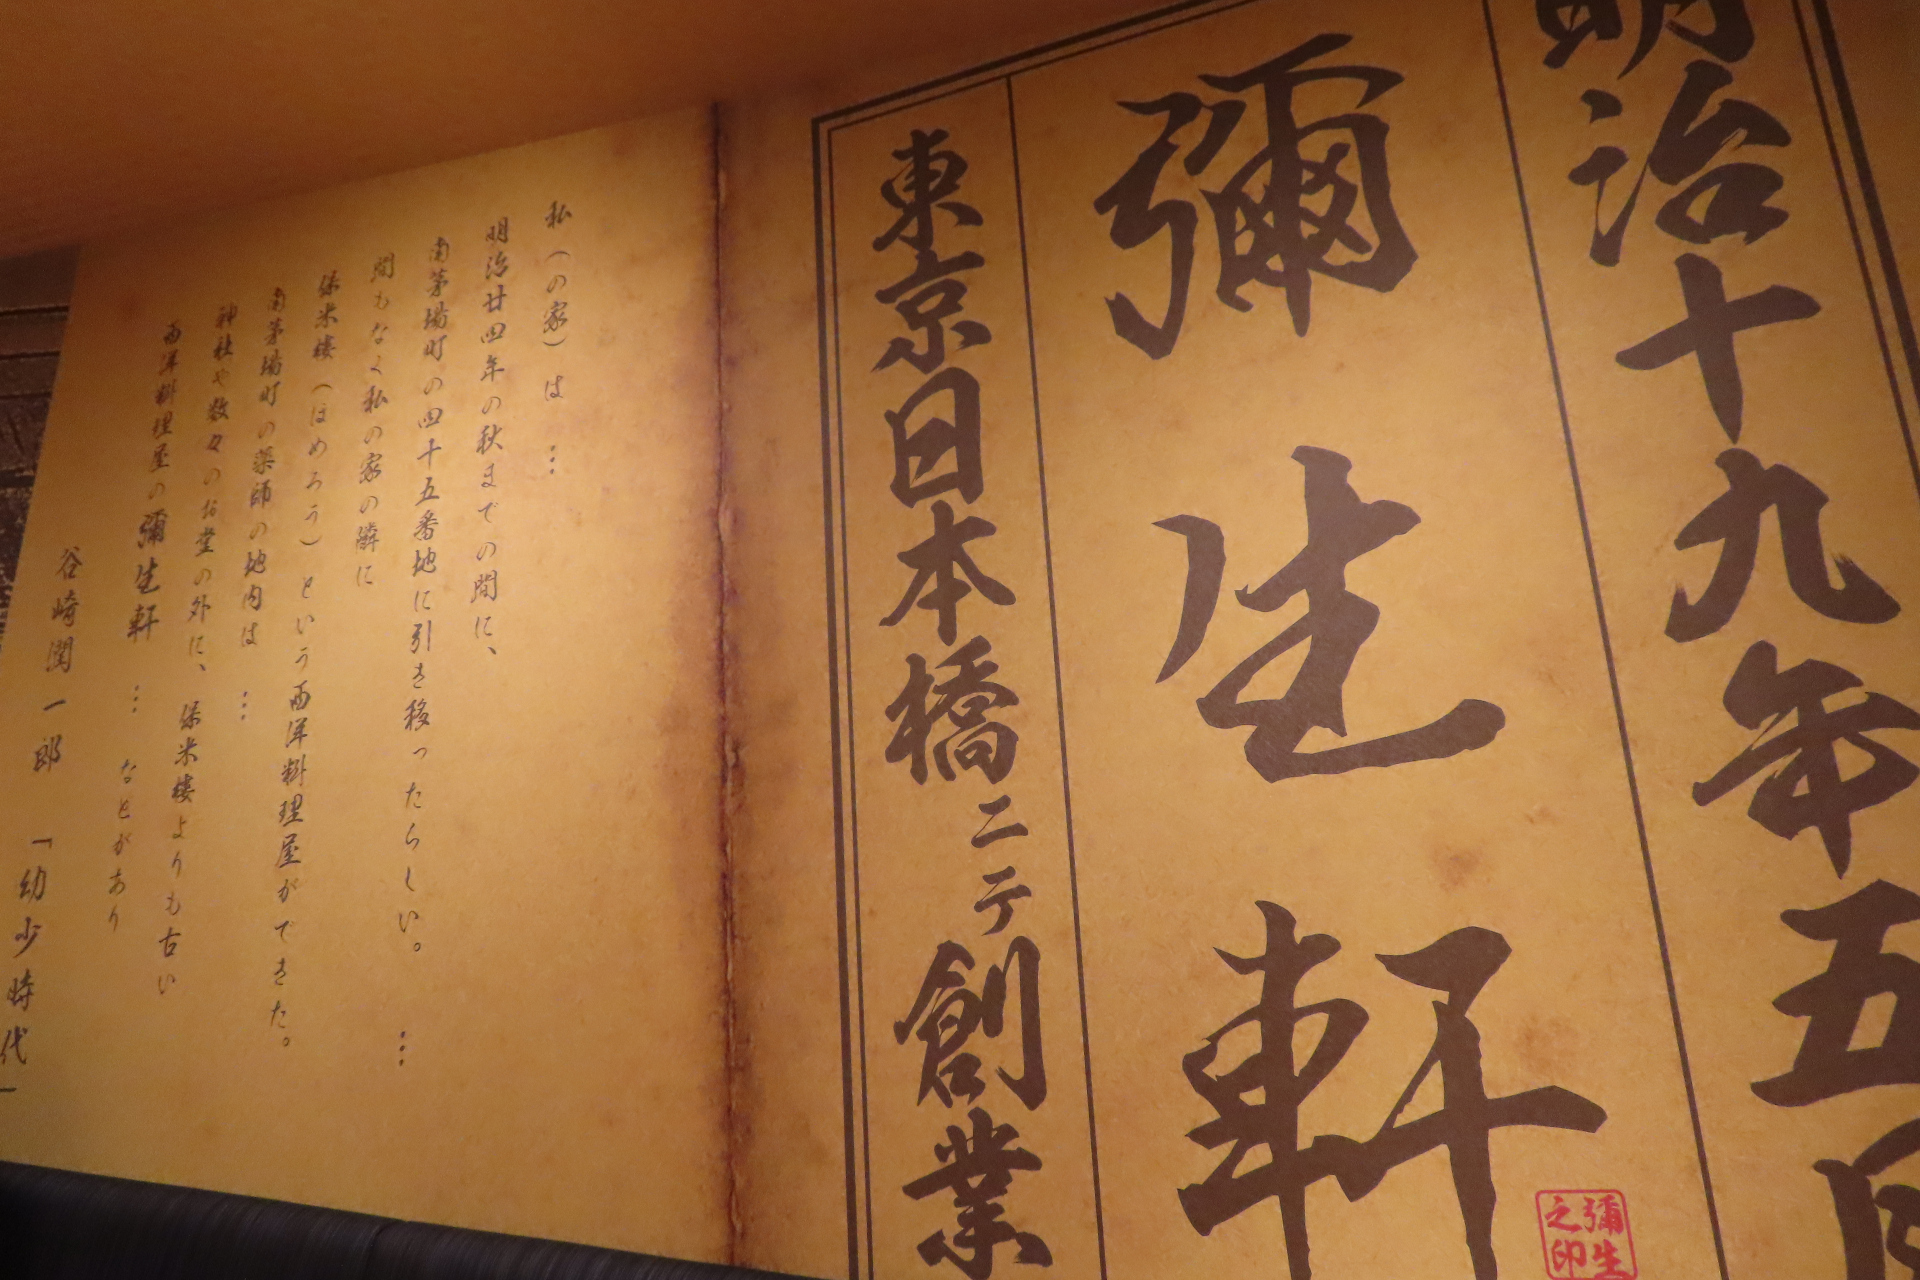 明治十九年五月
彌生軒
東京日本橋ニテ創業
彌生
之印
私(の家)は …
明治廿四年の秋までの間に、
南茅場町の四十五番地に引き移ったらしい。 …
間もなく私の家の隣に
保米楼(ほめろう)という西洋料理屋ができた。
南茅場町の薬師の地内は …
神社や数々のお堂の外に、保米楼よりも古い
西洋料理屋の彌生軒 … などがあり
谷崎潤一郎 「幼少時代」